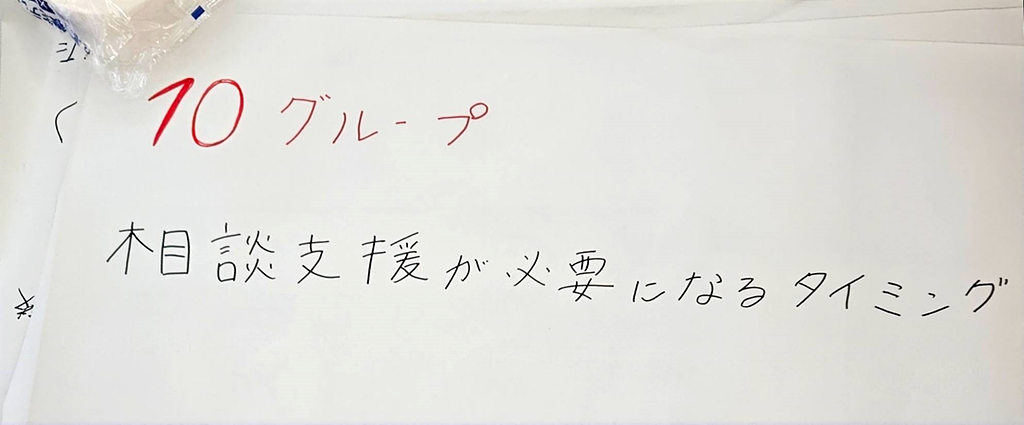 10 グループ
相談支援が必要になるタイミング